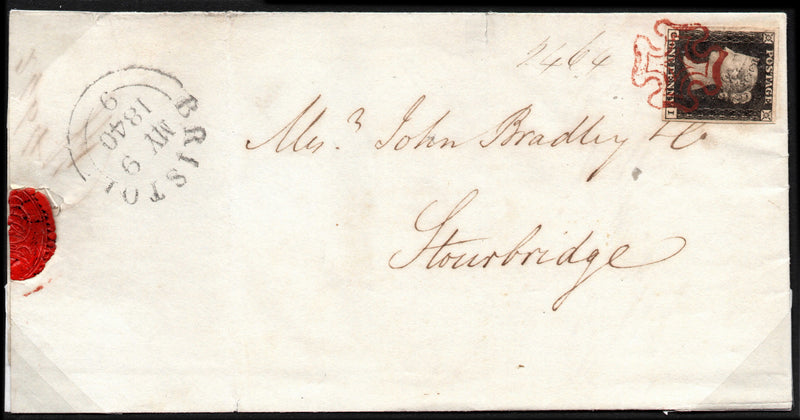 2464
POSTAGE
ONE PENNY
C I
BRISTOL
9
MY 9
1840
Mes.rs John Bradley & Co
Stourbridge